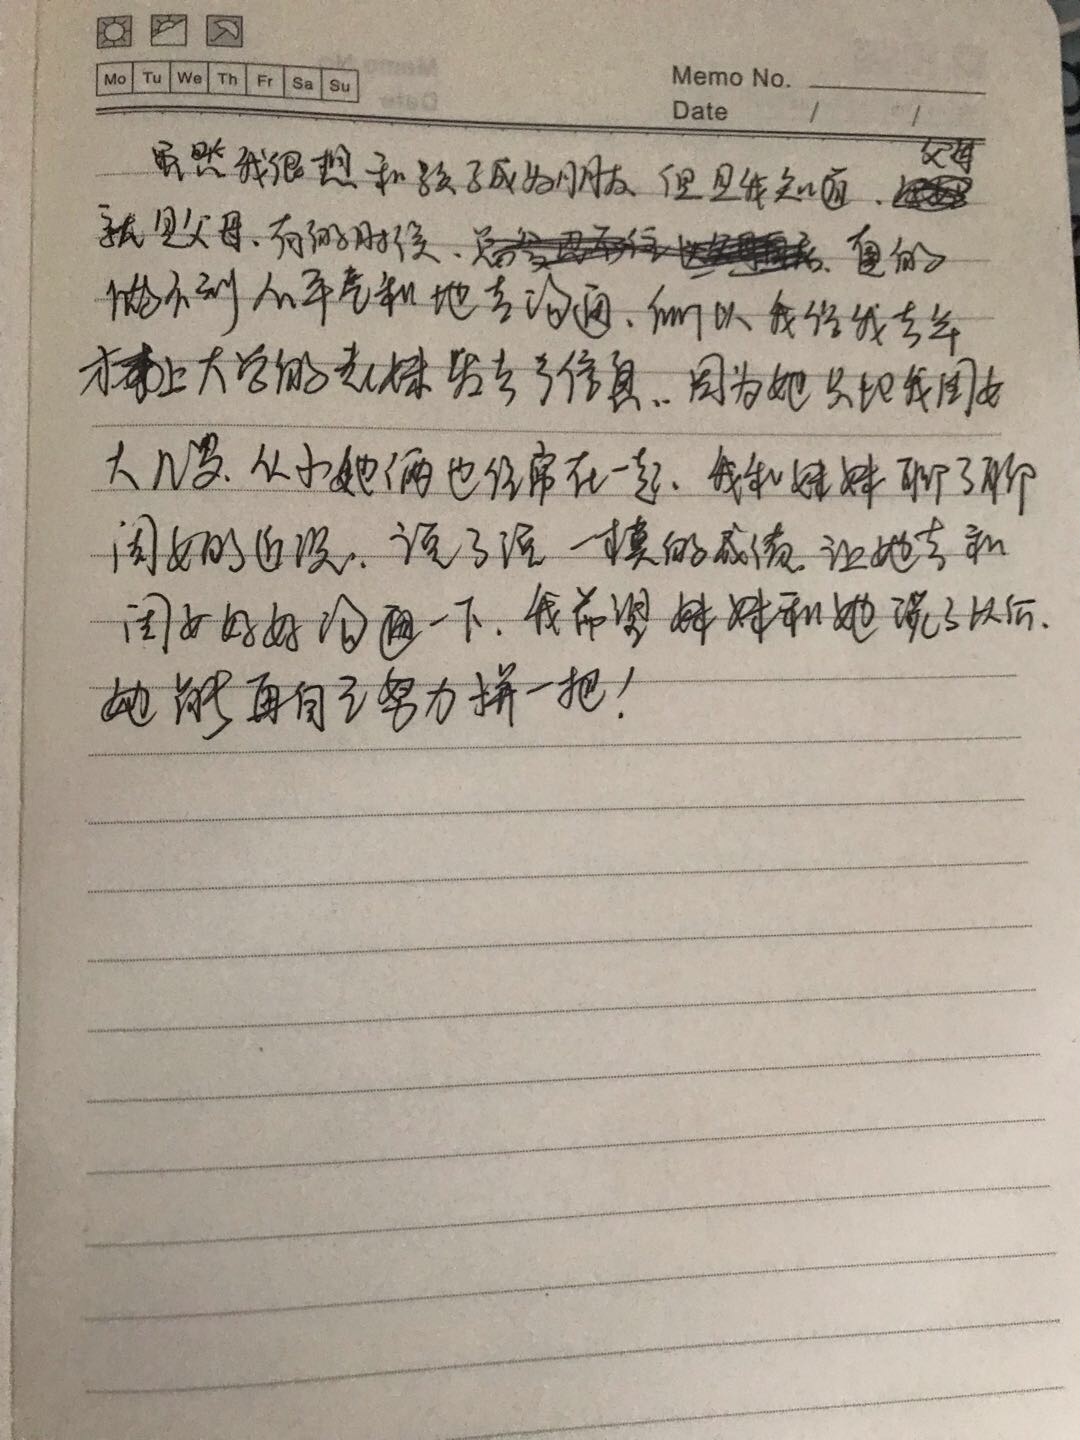 Mo Tu We Th Fr Sa Su
Memo No.
Date / /
虽然我很想和孩子成为朋友 但是我知道、父母
就是父母、有的时候、真的
做不到心平气和地去沟通、所以我给我去年
才上大学的表妹发去了信息.. 因为她只比我闺女
大几岁、从小她俩也经常在一起、我和妹妹聊了聊
闺女的近况、说了说一模的成绩、让她去和
闺女好好沟通一下、我希望妹妹和她说了以后、
她能再自己努力拼一把！